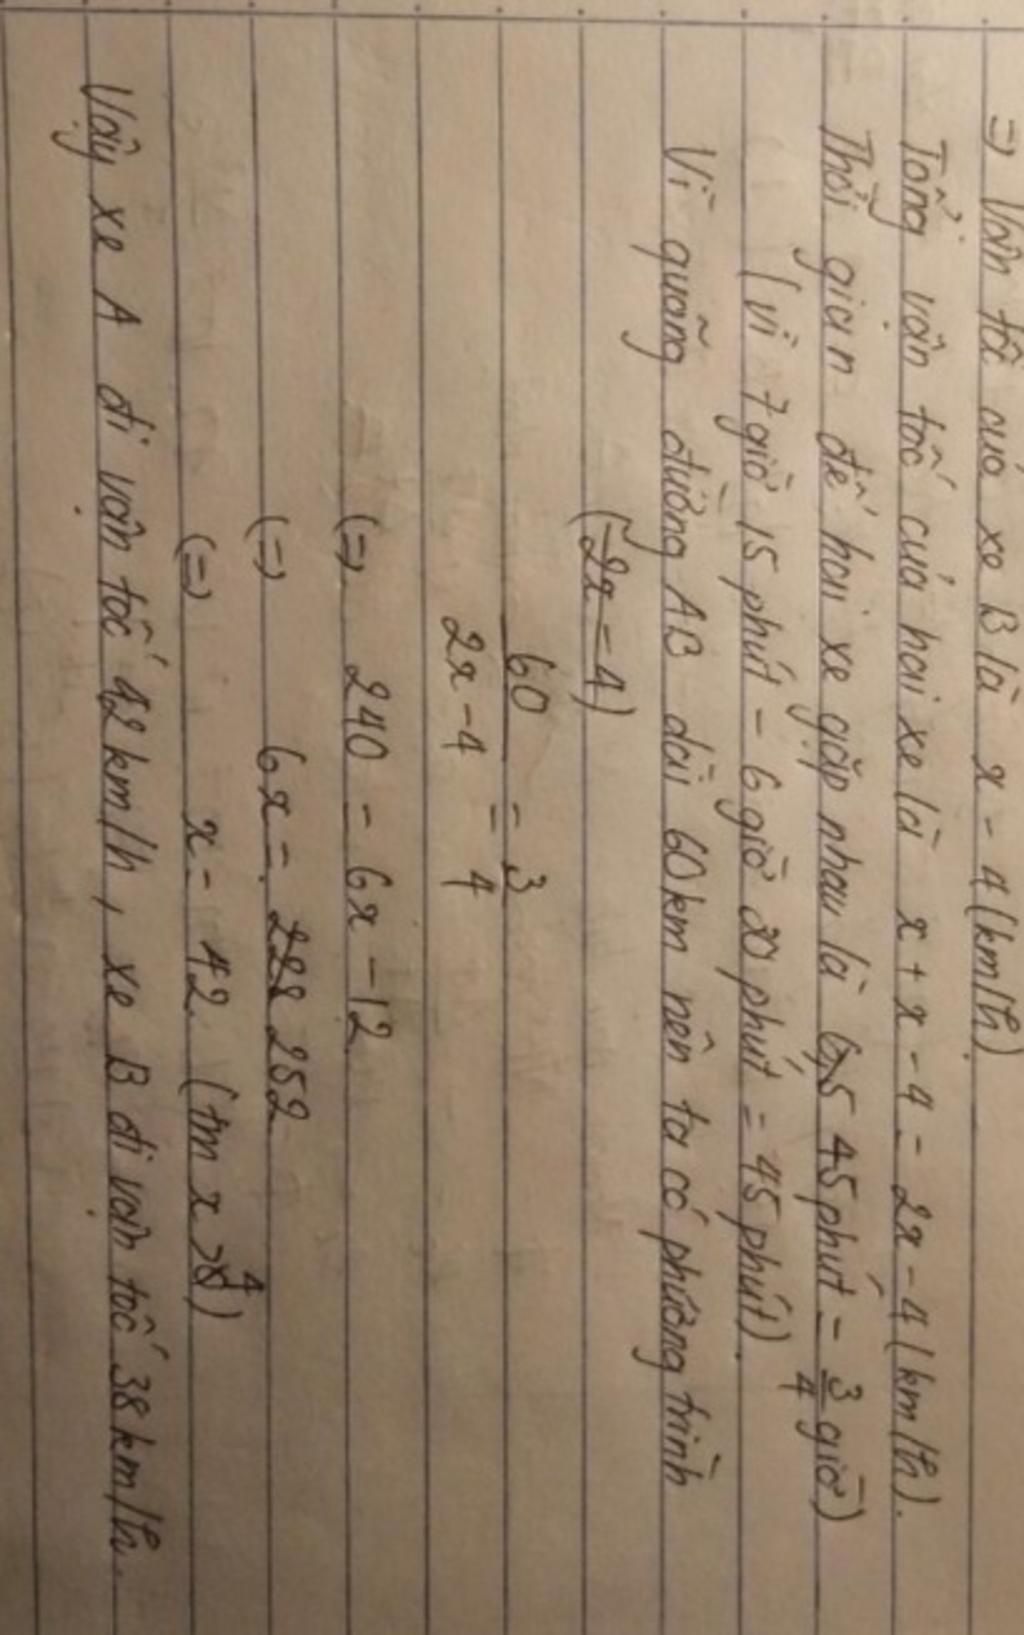 => Vận tốc của xe B là x - 4 (km/h).
Tổng vận tốc của hai xe là x + x - 4 = 2x - 4 (km/h).
Thời gian để hai xe gặp nhau là 45 phút = 3/4 giờ)
(vì 7 giờ 15 phút - 6 giờ 30 phút = 45 phút).
Vì quãng đường AB dài 60km nên ta có phương trình
(2x - 4)
60/(2x - 4) = 3/4
(=) 240 = 6x - 12
(=) 6x = 228 252
(=) x = 42 (tm x > 4)
Vậy xe A đi vận tốc 42km/h, xe B đi vận tốc 38km/h.